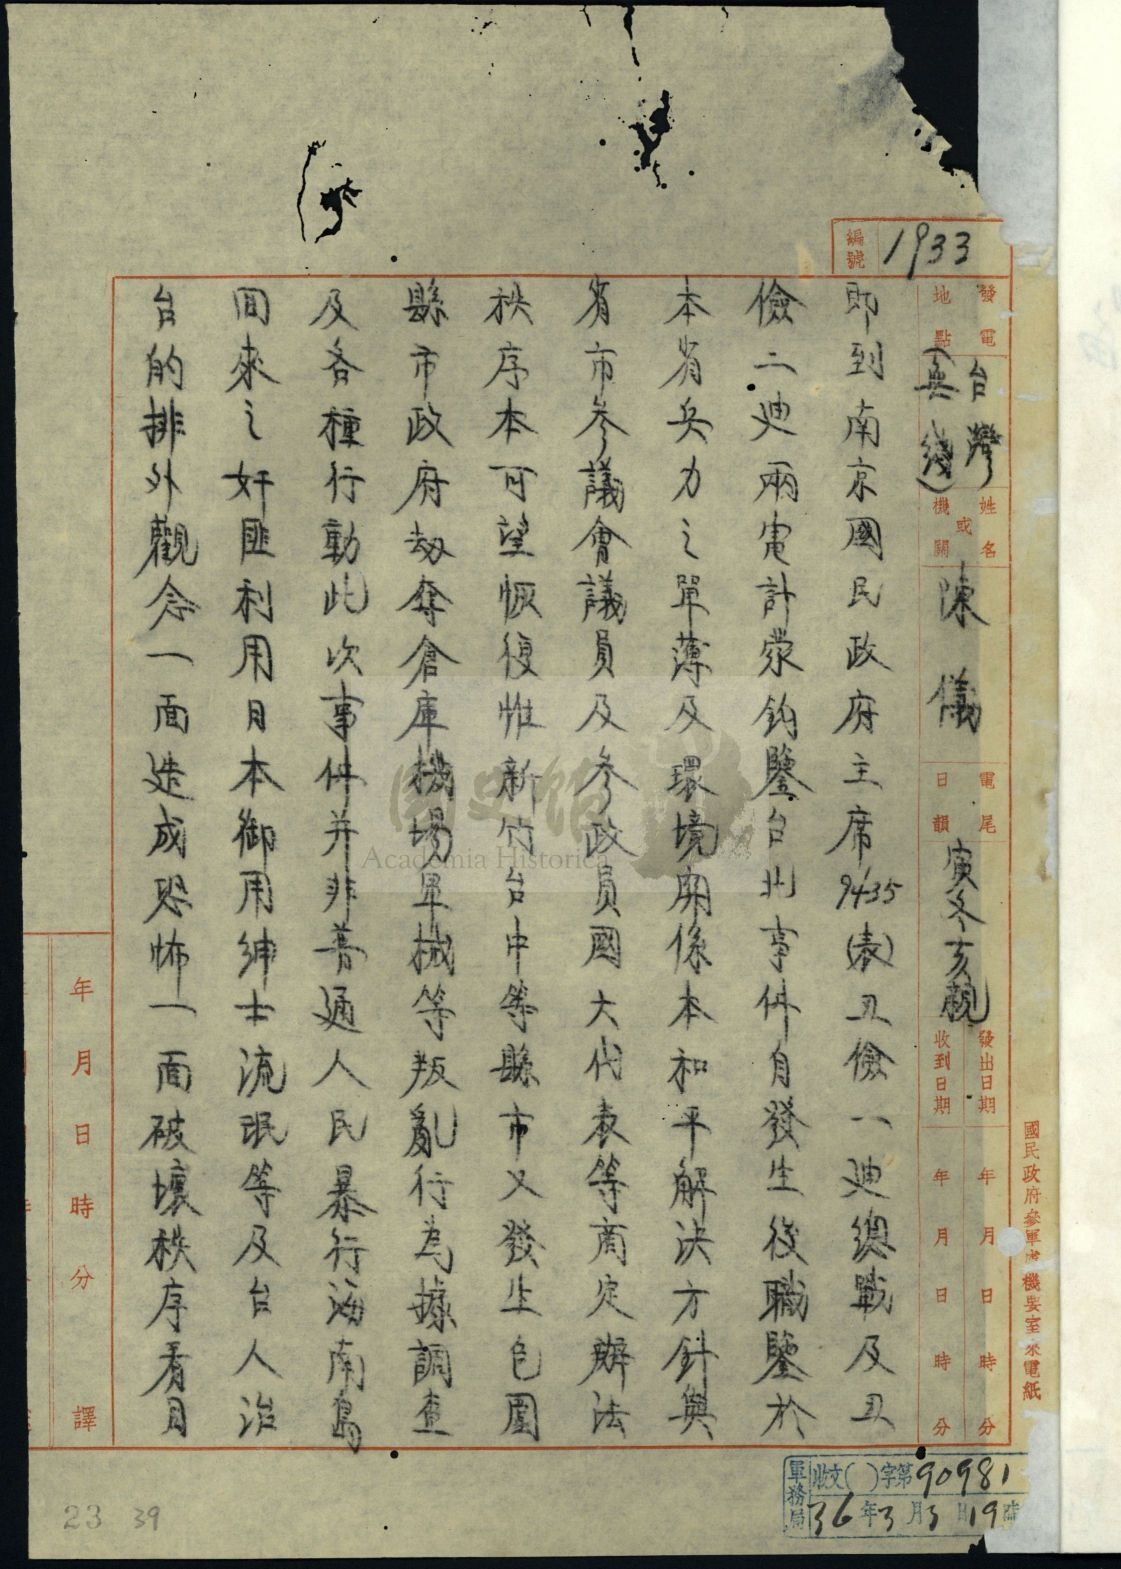 國民政府參軍處機要室來電紙
編號 1933
發電地點 台灣(無綫)
姓名或機關 陳儀
電尾日韻 寅冬亥親
發出日期 年 月 日 時 分
收到日期 年 月 日 時 分
即到南京國民政府主席9435(表)丑儉一迪總戰及丑
儉二迪兩電計蒙鈞鑒台北事件自發生後職鑒於
本省兵力之單薄及環境關係本和平解決方針與
省市參議會議員及參政員國大代表等商定辦法
秩序本可望恢復惟新竹台中等縣市又發生包圍
縣市政府劫奪倉庫機場軍械等叛亂行為據調查
及各種行動此次事件并非普通人民暴行海南島
回來之奸匪利用日本御用紳士流氓等及台人治
台的排外觀念一面造成恐怖一面破壞秩序看目
年 月 日 時 分 譯
軍務局 收文( )字第90981
36年3月3日19時
23 39
國史館
Academia Historica